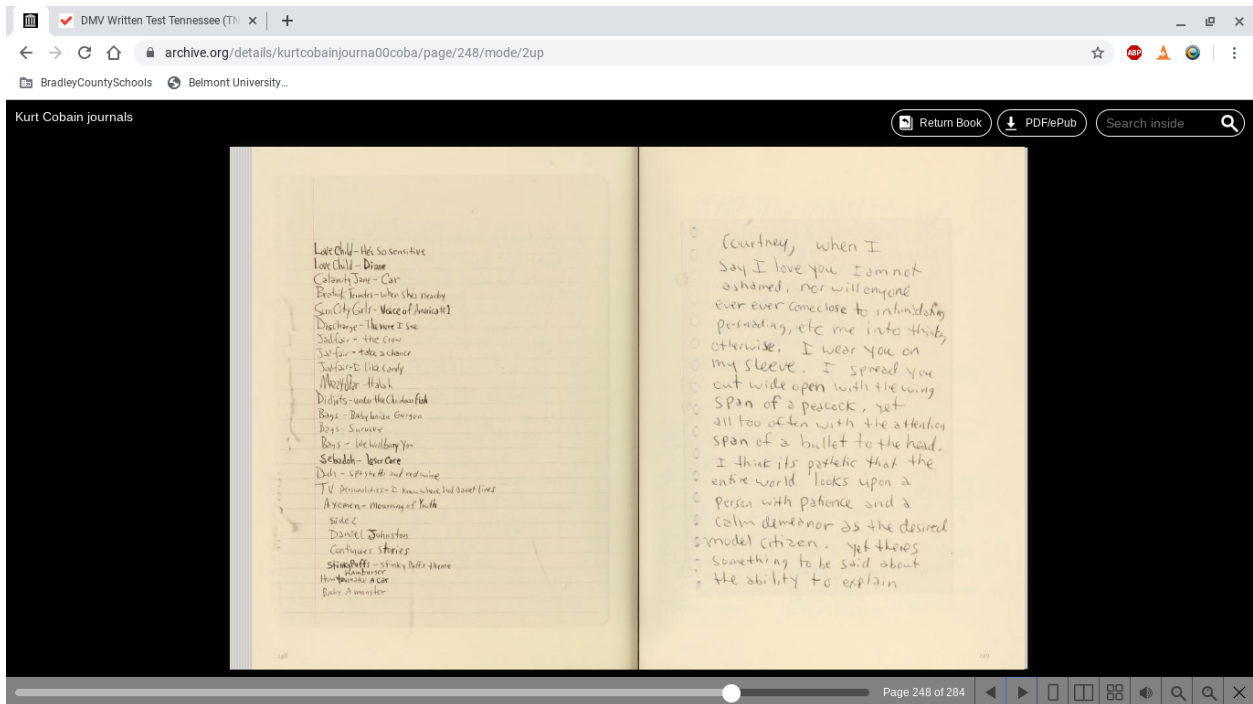 DMV Written Test Tennessee (TN
archive.org/details/kurtcobainjourna00coba/page/248/mode/2up
ABP
BradleyCountySchools
Belmont University…
Kurt Cobain journals
Return Book
PDF/ePub
Search inside
Love Child - He's so sensitive
Love Child - Diane
Calamity Jane - Car
when shes nearby
Sun City Girls - Voice of America #1
Discharge - The more I See
Jad fair - the Crow
Jad fair - take a chance
Jad fair - I like Candy
Halah
Didjits - under the Christmas Fish
Bags - Babylonian Gorgon
Bags - Survive
Bags - We will bury You
Sebadoh - loser Core
Duh - spaghetti and red wine
TV personalities - I know where Syd Barret lives
Axemen - mourning of Youth
side 2
Daniel Johnston
Continues stories
Stinky Puffs - stinky Puffs theme
Hamburger
How You make A Car
Baby A monster
248
Courtney, when I
say I love you I am not
ashamed, nor will anyone
ever ever come close to intimidating
persuading, etc me into thinking
otherwise. I wear you on
my sleeve. I spread you
out wide open with the wing
span of a peacock, yet
all too often with the attention
span of a bullet to the head.
I think its pathetic that the
entire world looks upon a
person with patience and a
calm demeanor as the desired
model citizen. yet theres
something to be said about
the ability to explain
249
Page 248 of 284